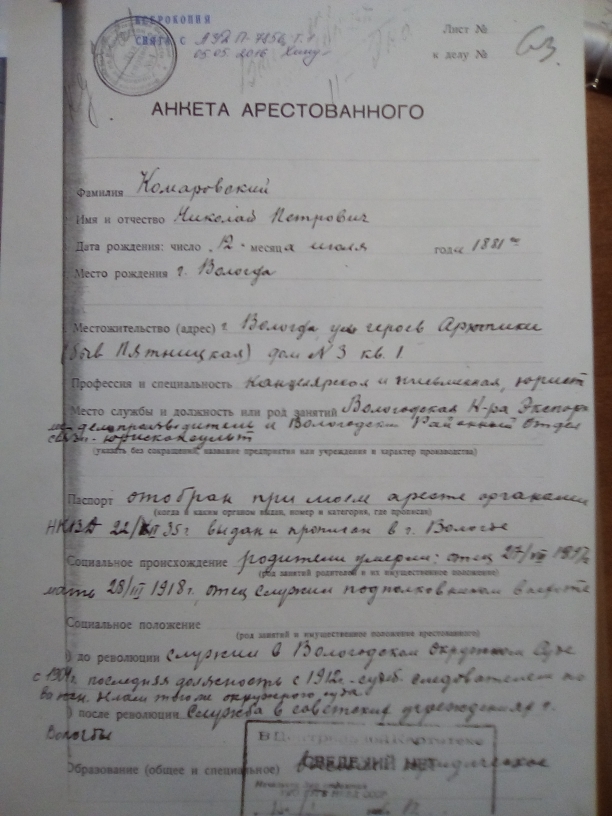 КСЕРОКОПИЯ
Лист №
СНЯТА С
05.05.2016
к делу №
63
АНКЕТА АРЕСТОВАННОГО
Фамилия Комаровский
Имя и отчество Николай Петрович
Дата рождения: число 12 месяца июля года 1881
Место рождения г. Вологда
Местожительство (адрес) г. Вологда, ул. героев Арктики
(быв Пятницкая) дом № 3 кв. 1
Профессия и специальность канцелярская и письменная, юрист
Место службы и должность или род занятий Вологодская К-ра
делопроизводитель и Вологодский Районный отдел
связи - юрисконсульт
(указать без сокращений, название предприятия или учреждения и характер производства)
Паспорт отобран при моем аресте органами
(когда и каким органом выдан, номер и категория, где прописан)
НКВД 35 г выдан и прописан в г. Вологде
Социальное происхождение родители умерли: отец 27/VII
(род занятий родителей и их имущественное положение)
мать 28/III 1918 г, отец служил подполковником
Социальное положение
(род занятий и имущественное положение арестованного)
) до революции служил в Вологодском окружном суде
последняя должность с 1912 г. - судеб. следователем по
того же окружного суда
) после революции служба в советских учреждениях г.
Вологды
Образование (общее и специальное) юридическое
В Центральной Картотеке
СВЕДЕНИЙ НЕТ